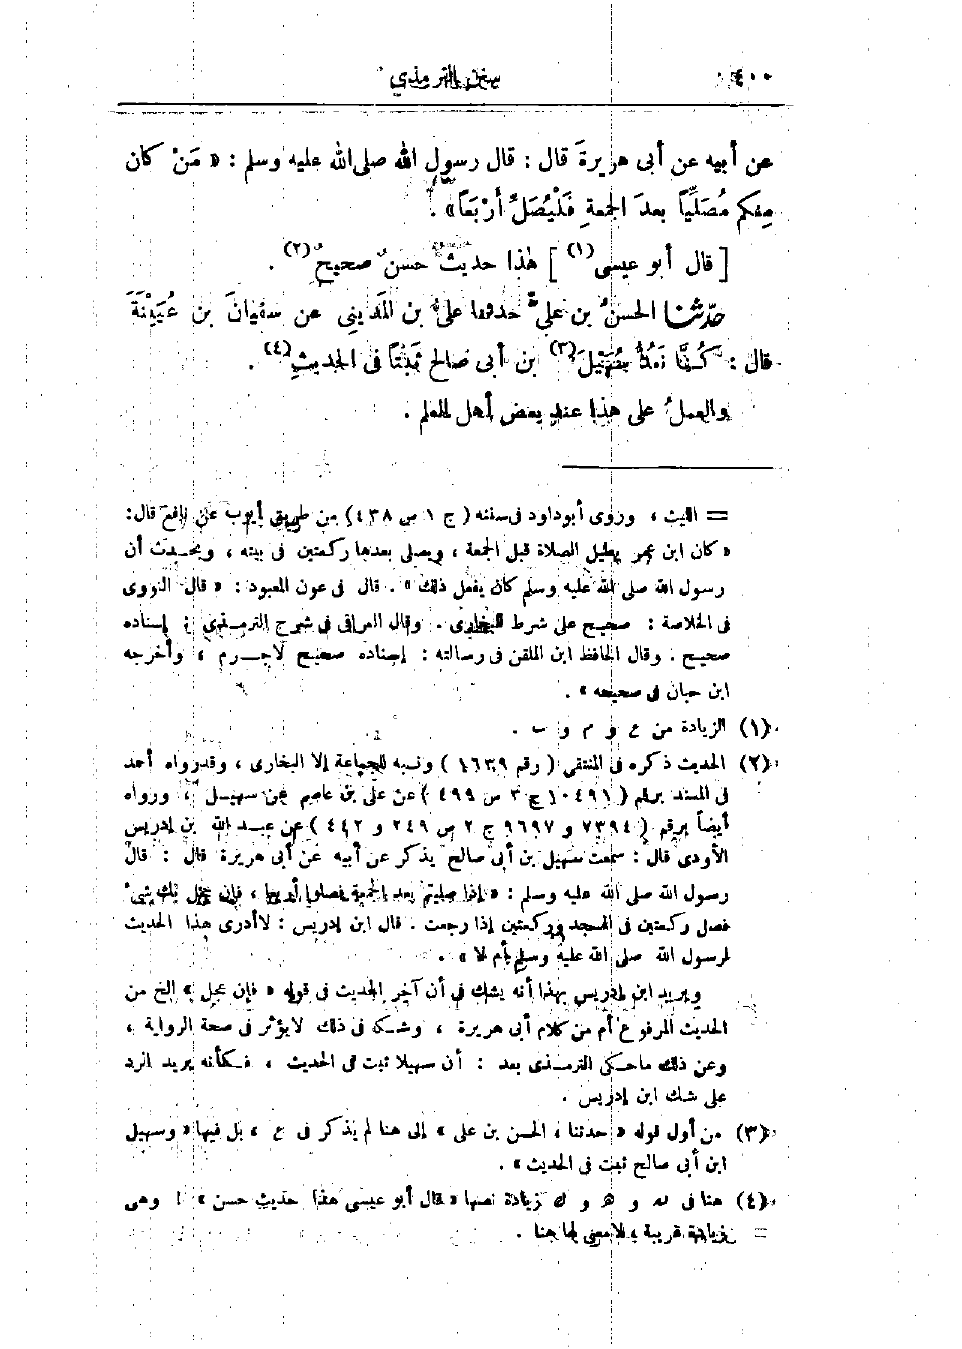 ٤٠٠ سنن الترمذي
عن أبيه عن أبى هريرةَ قال : قال رسول الله صلى الله عليه وسلم : « مَنْ كان
منكم مُصَلِّيًا بعدَ الجمعةِ فَلْيُصَلِّ أَرْبَعًا» .
[ قال أبو عيسى (١) ] هذا حديثٌ حسنٌ صحيحٌ (٢) .
حدّثنا الحسنُ بن علىٍّ حدثنا علىُّ بن المَدينِى عن سفيانَ بن عُيَيْنَةَ
قال : كُنَّا نَعُدُّ سُهَيْلَ (٣) بن أبى صالح ثَبْتًا فى الحديثِ (٤) .
والعملُ على هذا عند بعض أهل العلم .
= الليث ، وروى أبو داود فى سننه ( ج ١ ص ٤٣٨ ) من طريق أيوب عن نافع قال :
« كان ابن عمر يطيل الصلاة قبل الجمعة ، ويصلى بعدها ركعتين فى بيته ، ويحدث أن
رسول الله صلى الله عليه وسلم كان يفعل ذلك » . قال فى عون المعبود : « قال النووى
فى الخلاصة : صحيح على شرط البخارى . وقال العراقى فى شرح الترمذى : إسناده
صحيح . وقال الحافظ ابن الملقن فى رسالته : إسناده صحيح لاجرم ، وأخرجه
ابن حبان فى صحيحه » .
(١) الزيادة من ع و م و ب .
(٢) الحديث ذكره فى المنتقى ( رقم ١٦٣٩ ) ونسبه للجماعة إلا البخارى ، وقد رواه أحمد
فى المسند برقم ( ١٠٤٩١ ج ٢ ص ٤٩٩ ) عن على بن عاصم عن سهيل ، ورواه
أيضاً برقم ( ٧٣٩٤ و ٩٦٩٧ ج ٢ ص ٢٤٩ و ٤٤٢ ) عن عبد الله بن إدريس
الأودى قال : سمعت سهيل بن أبى صالح يذكر عن أبيه عن أبى هريرة قال : قال
رسول الله صلى الله عليه وسلم : « إذا صليتم بعد الجمعة فصلوا أربعا ، فإن عجل بك شىء
فصل ركعتين فى المسجد وركعتين إذا رجعت . قال ابن إدريس : لا أدرى هذا الحديث
لرسول الله صلى الله عليه وسلم أم لا » .
ويريد ابن إدريس بهذا أنه يشك فى أن آخر الحديث فى قوله « فإن عجل » الخ من
الحديث المرفوع أم من كلام أبى هريرة ، وشكه فى ذلك لايؤثر فى صحة الرواية ،
وعن ذلك ماحكى الترمذى بعد : أن سهيلا ثبت فى الحديث ، فكأنه يريد الرد
على شك ابن إدريس .
(٣) من أول قوله « حدثنا ، الحسن بن على » إلى هنا لم يذكر فى ع ، بل فيها « وسهيل
ابن أبى صالح ثبت فى الحديث » .
(٤) هنا فى نه و ه و ك زيادة نصها « قال أبو عيسى هذا حديث حسن » ! وهى
زيادة غريبة ، لامعنى لها هنا . =